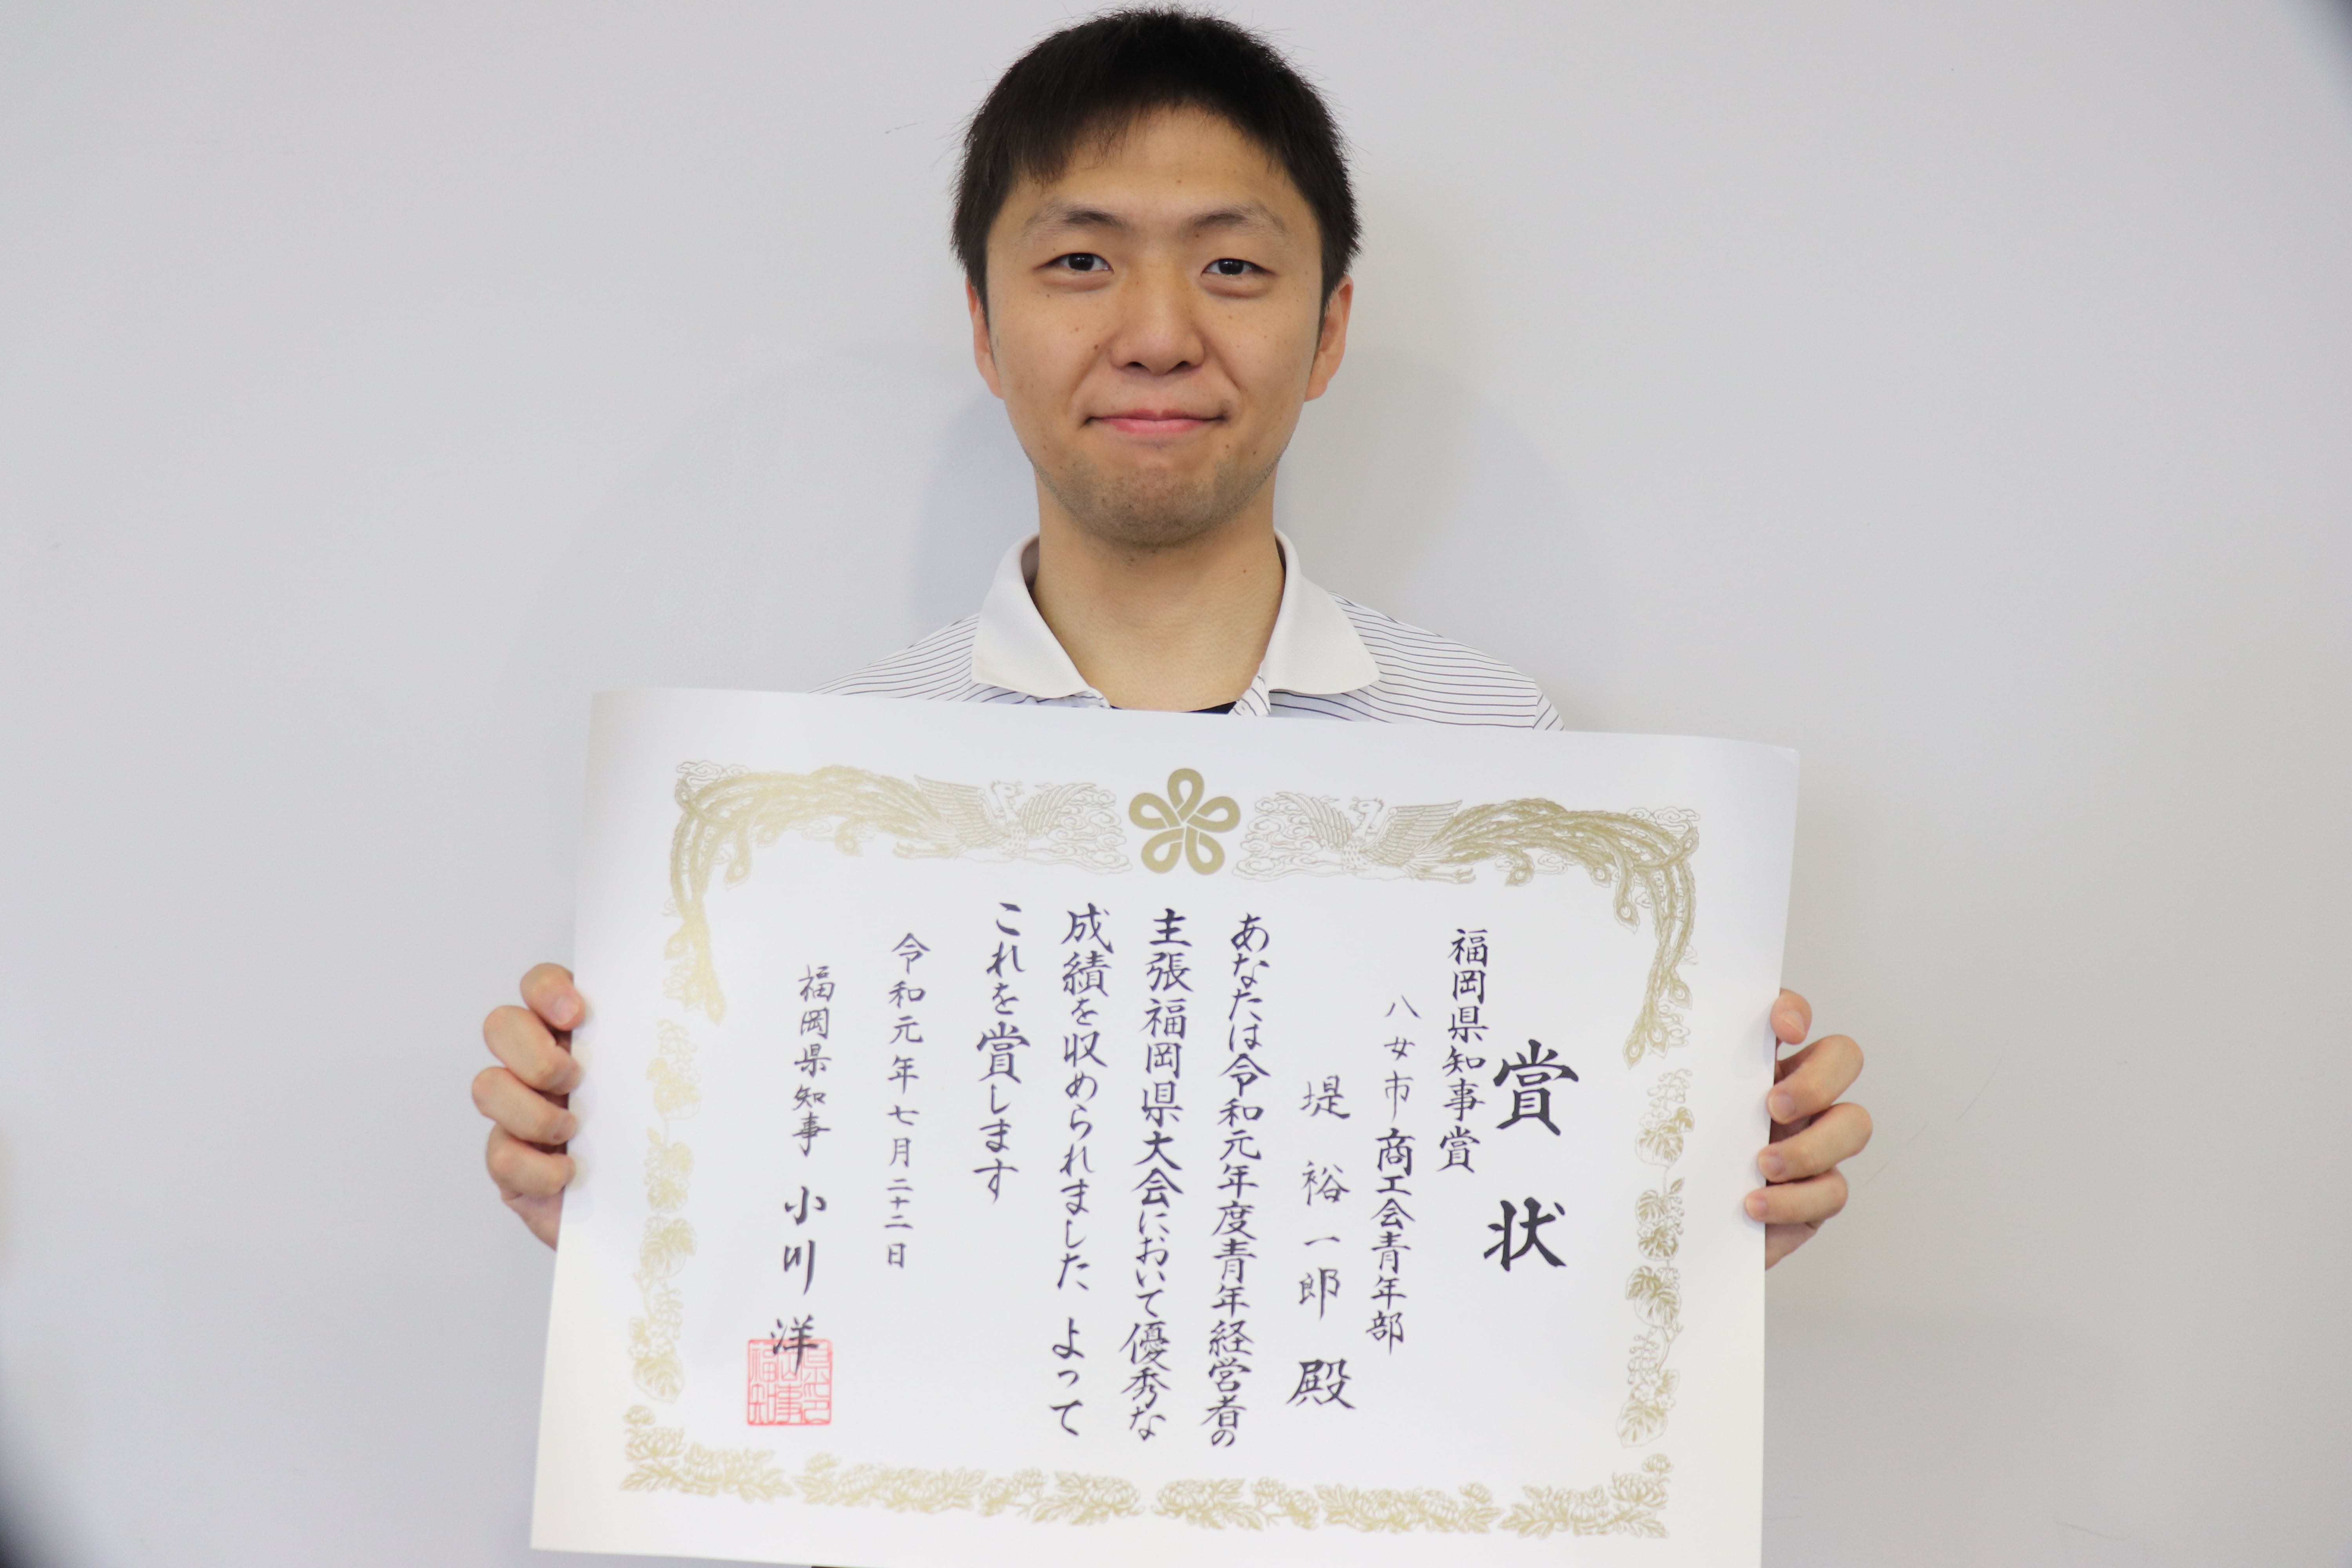 賞状
福岡県知事賞
八女市商工会青年部
堤裕一郎殿
あなたは令和元年度青年経営者の
主張福岡県大会において優秀な
成績を収められました よって
これを賞します
令和元年七月二十二日
福岡県知事 小川洋